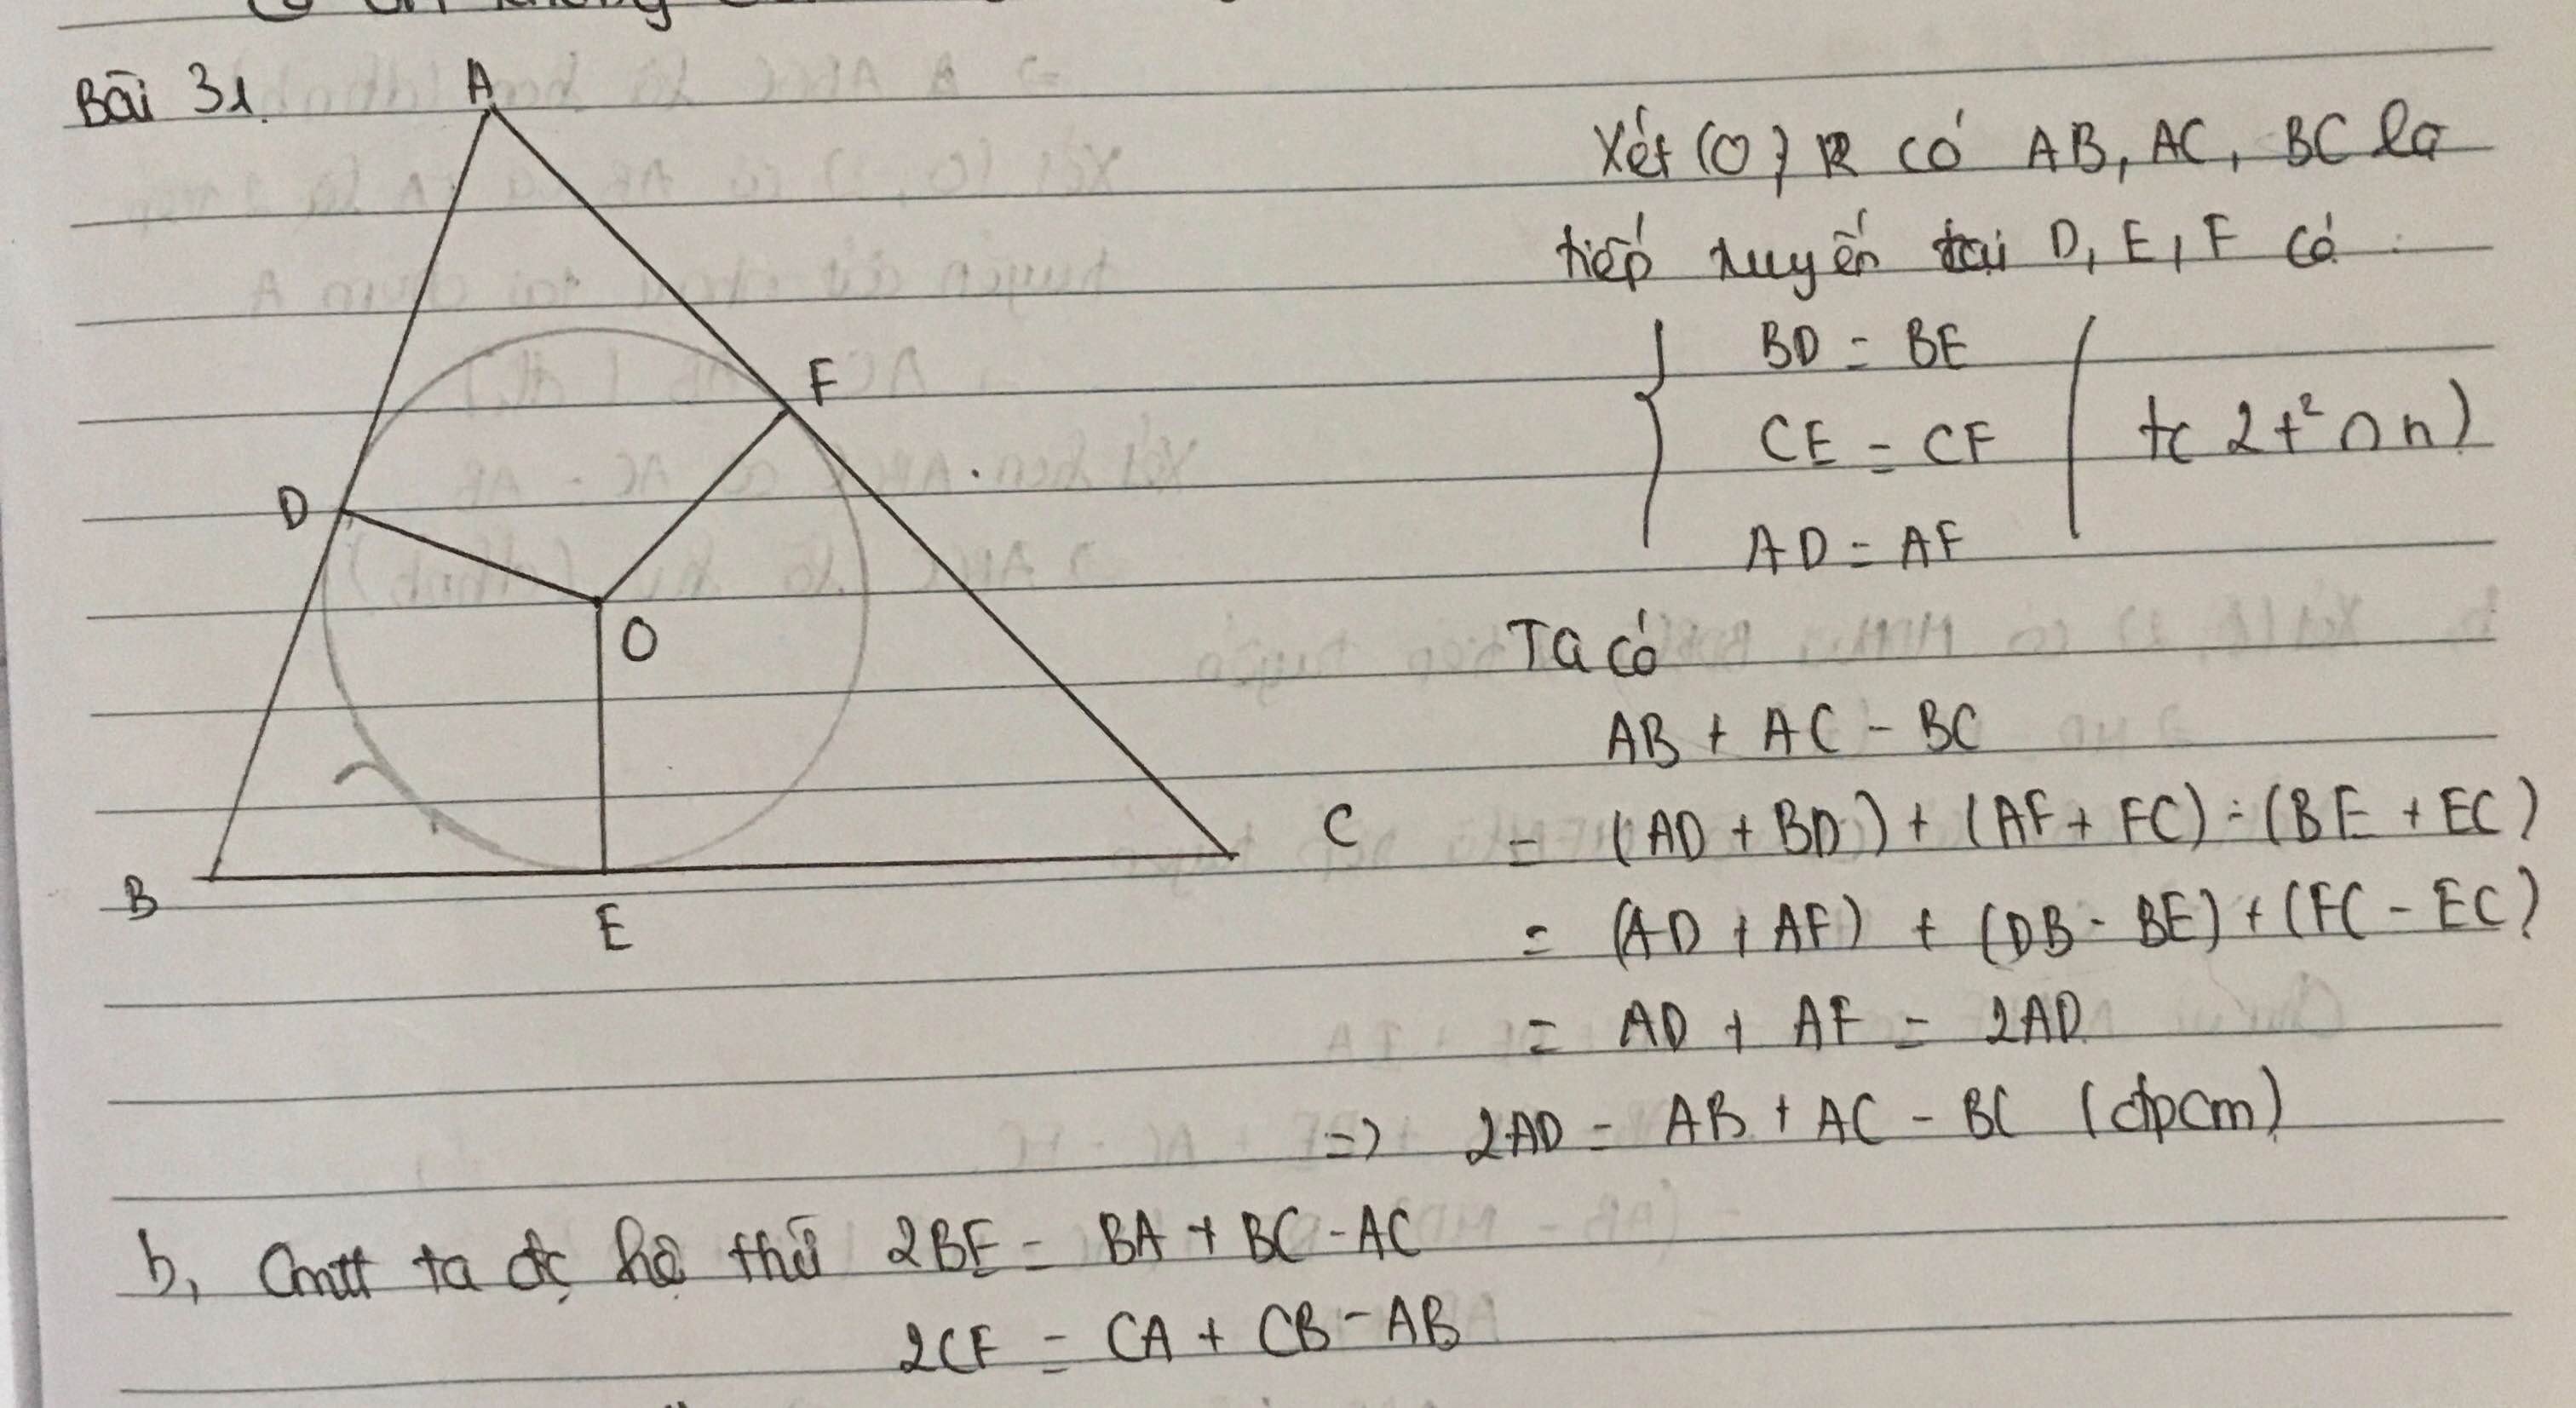 Bài 31.
A
F
D
O
C
B
E
Xét (O; R có AB, AC, BC là
tiếp tuyến tại D, E, F có :
BD = BE
CE = CF ( tc 2 t² ∩ n)
AD = AF
Ta có
AB + AC - BC
= (AD + BD) + (AF + FC) - (BE + EC)
= (AD + AF) + (DB - BE) + (FC - EC)
= AD + AF = 2AD
=> 2AD = AB + AC - BC (đpcm)
b, Cmtt ta đc hệ thứ 2BE = BA + BC - AC
2CF = CA + CB - AB